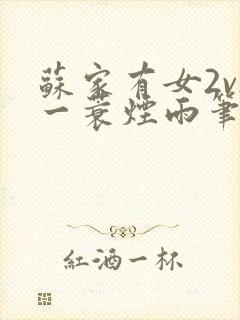 蘇家有女2v
一蓑煙雨筆
紅酒一杯